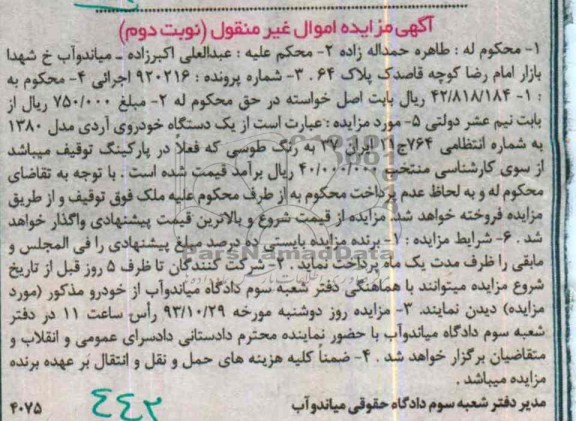 آگهی مزایده اموال غیر منقول (نوبت دوم)
۱- محکوم له : طاهره حمداله زاده ۲- محکم علیه : عبدالعلی اکبرزاده _ میاندوآب خ شهدا
بازار امام رضا کوچه قاصدک پلاک ۶۴ . ۳- شماره پرونده : ۹۲۰۲۱۶ اجرائی ۴- محکوم به
: ۱- ۴۲/۸۱۸/۱۸۴ ریال بابت اصل خواسته در حق محکوم له ۲- مبلغ ۷۵۰/۰۰۰ ریال از
بابت نیم عشر دولتی ۵- مورد مزایده : عبارت است از یک دستگاه خودروی آردی مدل ۱۳۸۰
به شماره انتظامی ۷۶۴ج۲۱ ایران ۲۷ به رنگ طوسی که فعلا در پارکینگ توقیف میباشد
از سوی کارشناسی منتخب ۴۰/۰۰۰/۰۰۰ ریال برآمد قیمت شده است . با توجه به تقاضای
محکوم له و به لحاظ عدم پرداخت محکوم به از طرف محکوم علیه ملک فوق توقیف و از طریق
مزایده فروخته خواهد شد. مزایده از قیمت شروع و بالاترین قیمت پیشنهادی واگذار خواهد
شد . ۶- شرایط مزایده : ۱- برنده مزایده بایستی ده درصد مبلغ پیشنهادی را فی المجلس و
مابقی را ظرف مدت یک ماه پرداخت نماید . ۲- شرکت کنندگان تا ظرف ۵ روز قبل از تاریخ
شروع مزایده میتوانند با هماهنگی دفتر شعبه سوم دادگاه میاندوآب از خودرو مذکور (مورد
مزایده) دیدن نمایند. ۳- مزایده روز دوشنبه مورخه ۹۳/۱۰/۲۹ رأس ساعت ۱۱ در دفتر
شعبه سوم دادگاه میاندوآب با حضور نماینده محترم دادستانی دادسرای عمومی و انقلاب و
متقاضیان برگزار خواهد شد . ۴- ضمناً کلیه هزینه های حمل و نقل و انتقال بر عهده برنده
مزایده میباشد .
مدیر دفتر شعبه سوم دادگاه حقوقی میاندوآب
۴۰۷۵
۴۴۲
ParsNamadData